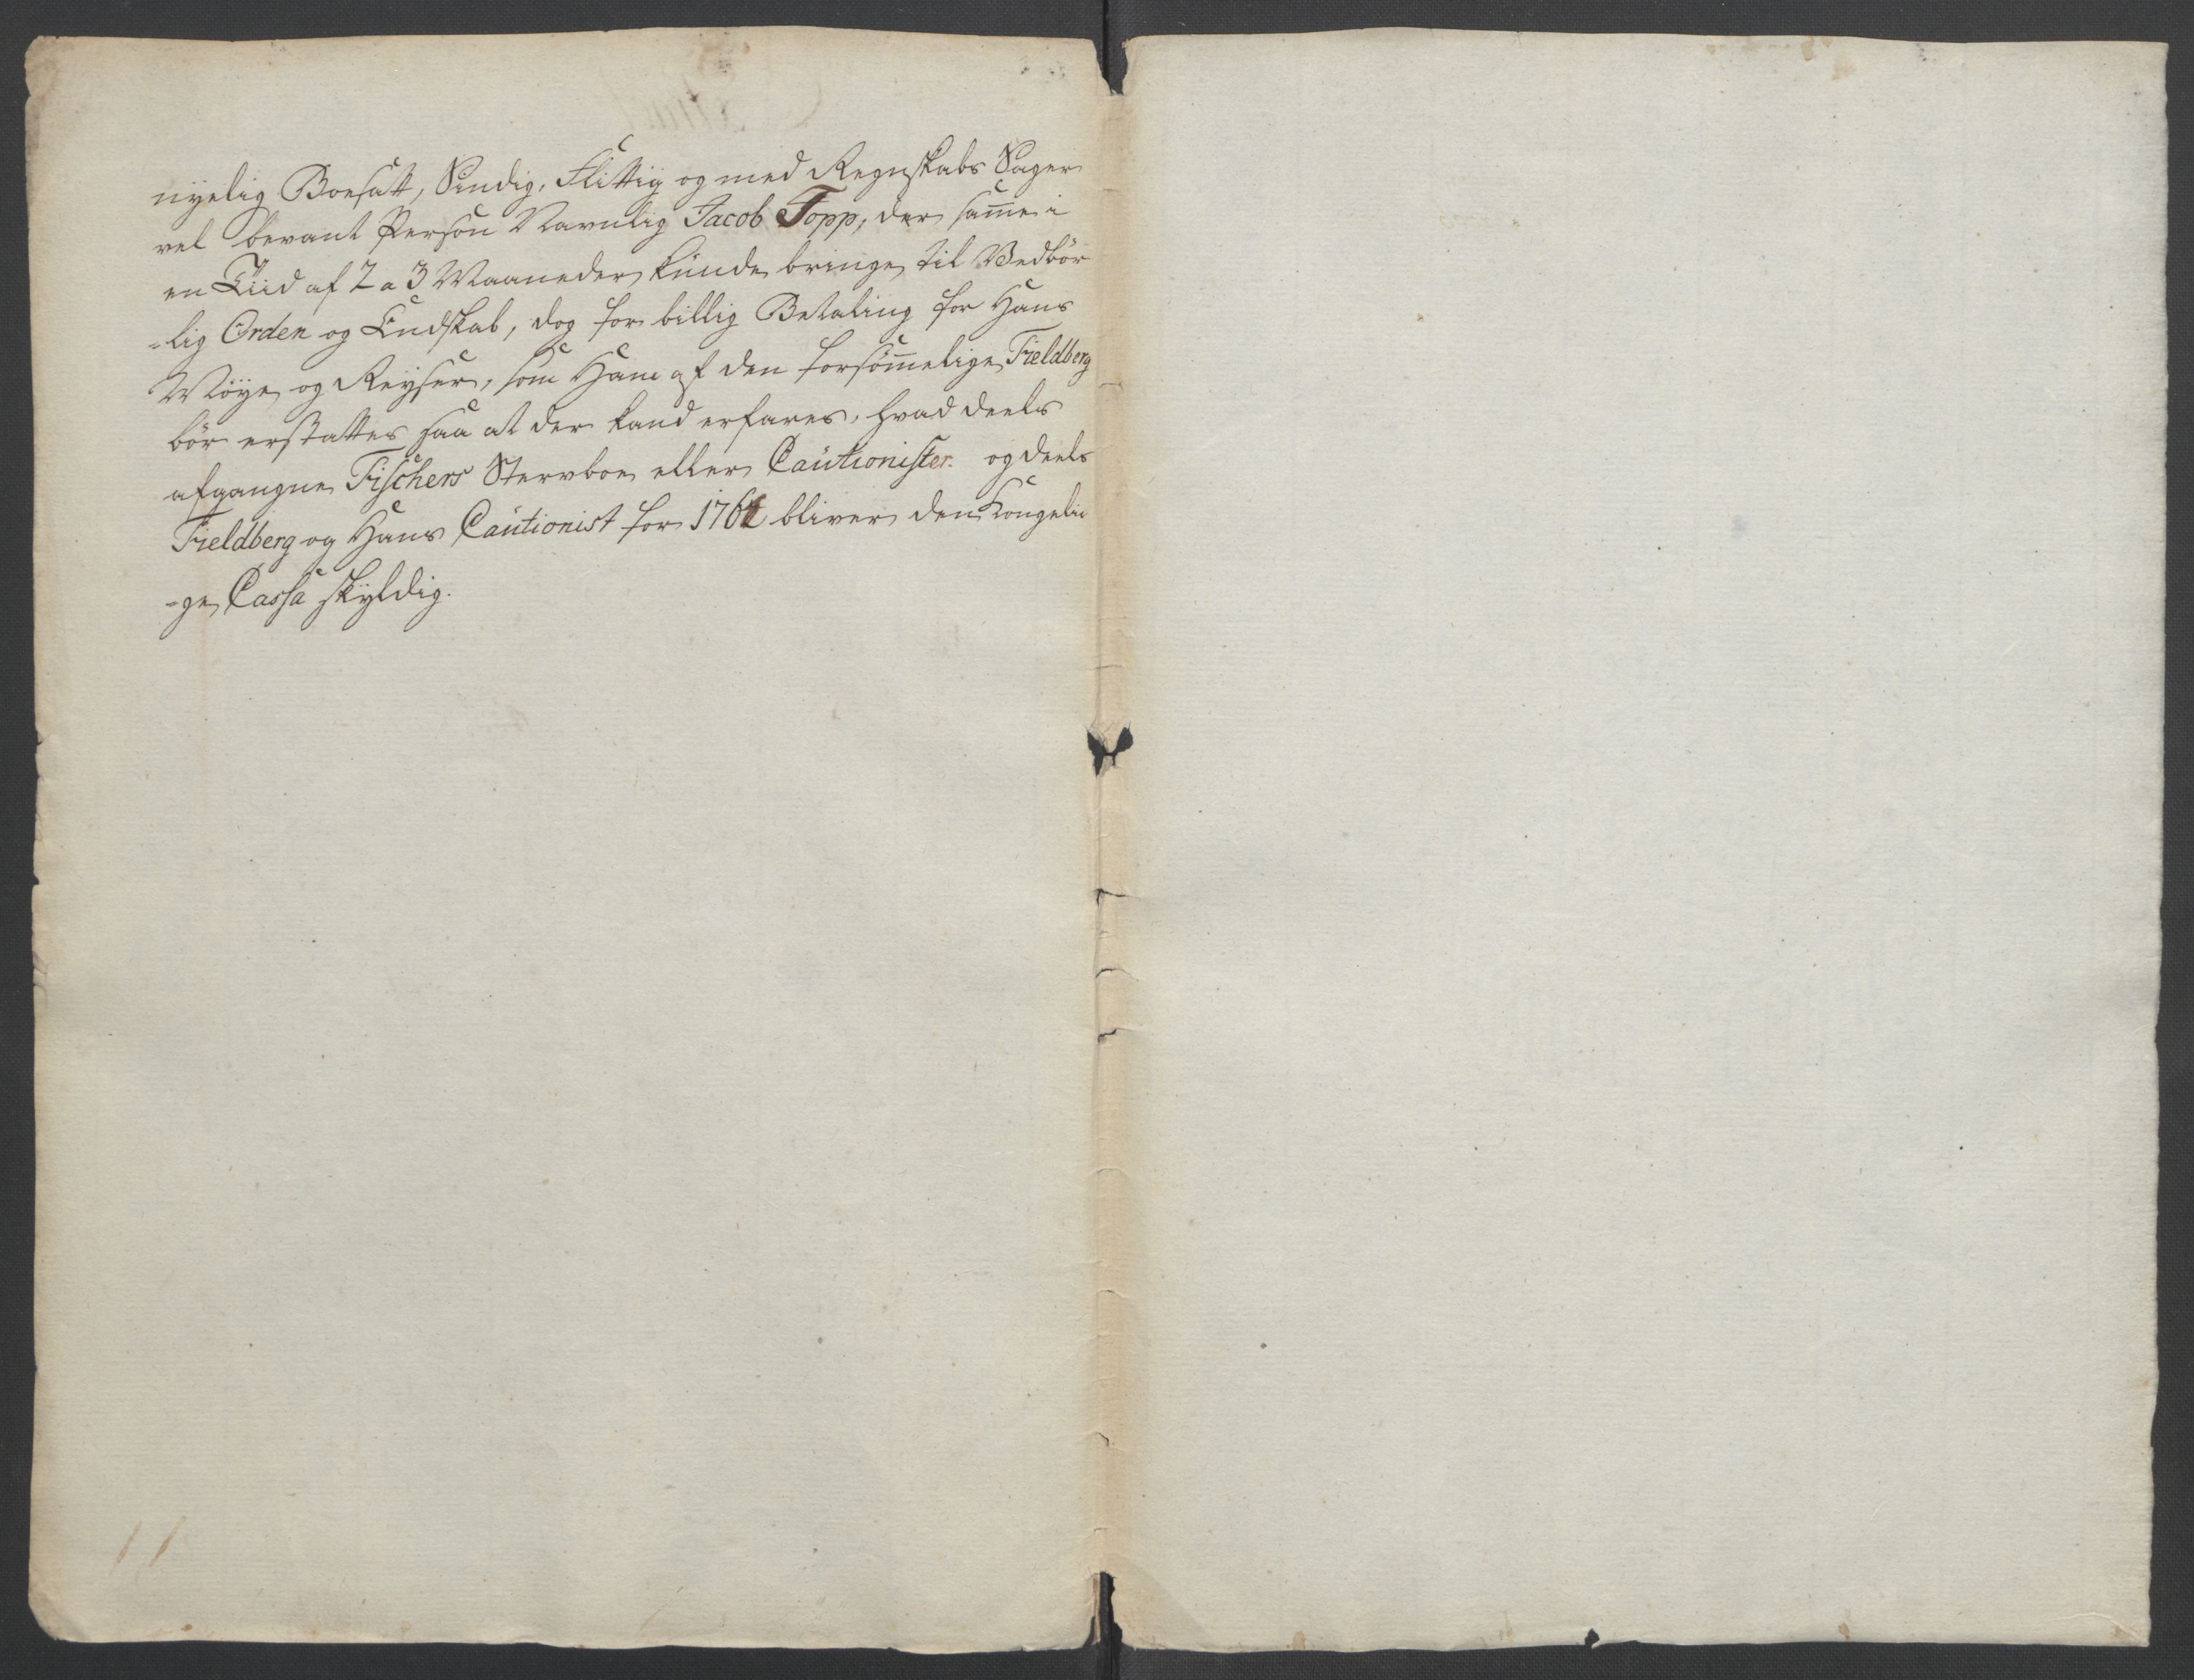 nyelig Boesatt, Sindig, Flittig og med Regnskabs Sager
vel bevant Person Navnlig Jacob Topp, der samme i
en Tiid af 2 a 3 Maaneder kunde bringe til Vedbör
-lig Orden og Endskab, dog for billig Betaling for Hans
Möye og Reyser, som Ham af den forsömmelige Fieldberg
bör erstattes saa at der kand erfares, hvad deels
afgangne Fischers Stervboe eller Cautionister og deels
Fieldberg og Hans Cautionist for bliver den Kongeli
-ge Cassa skyldig.